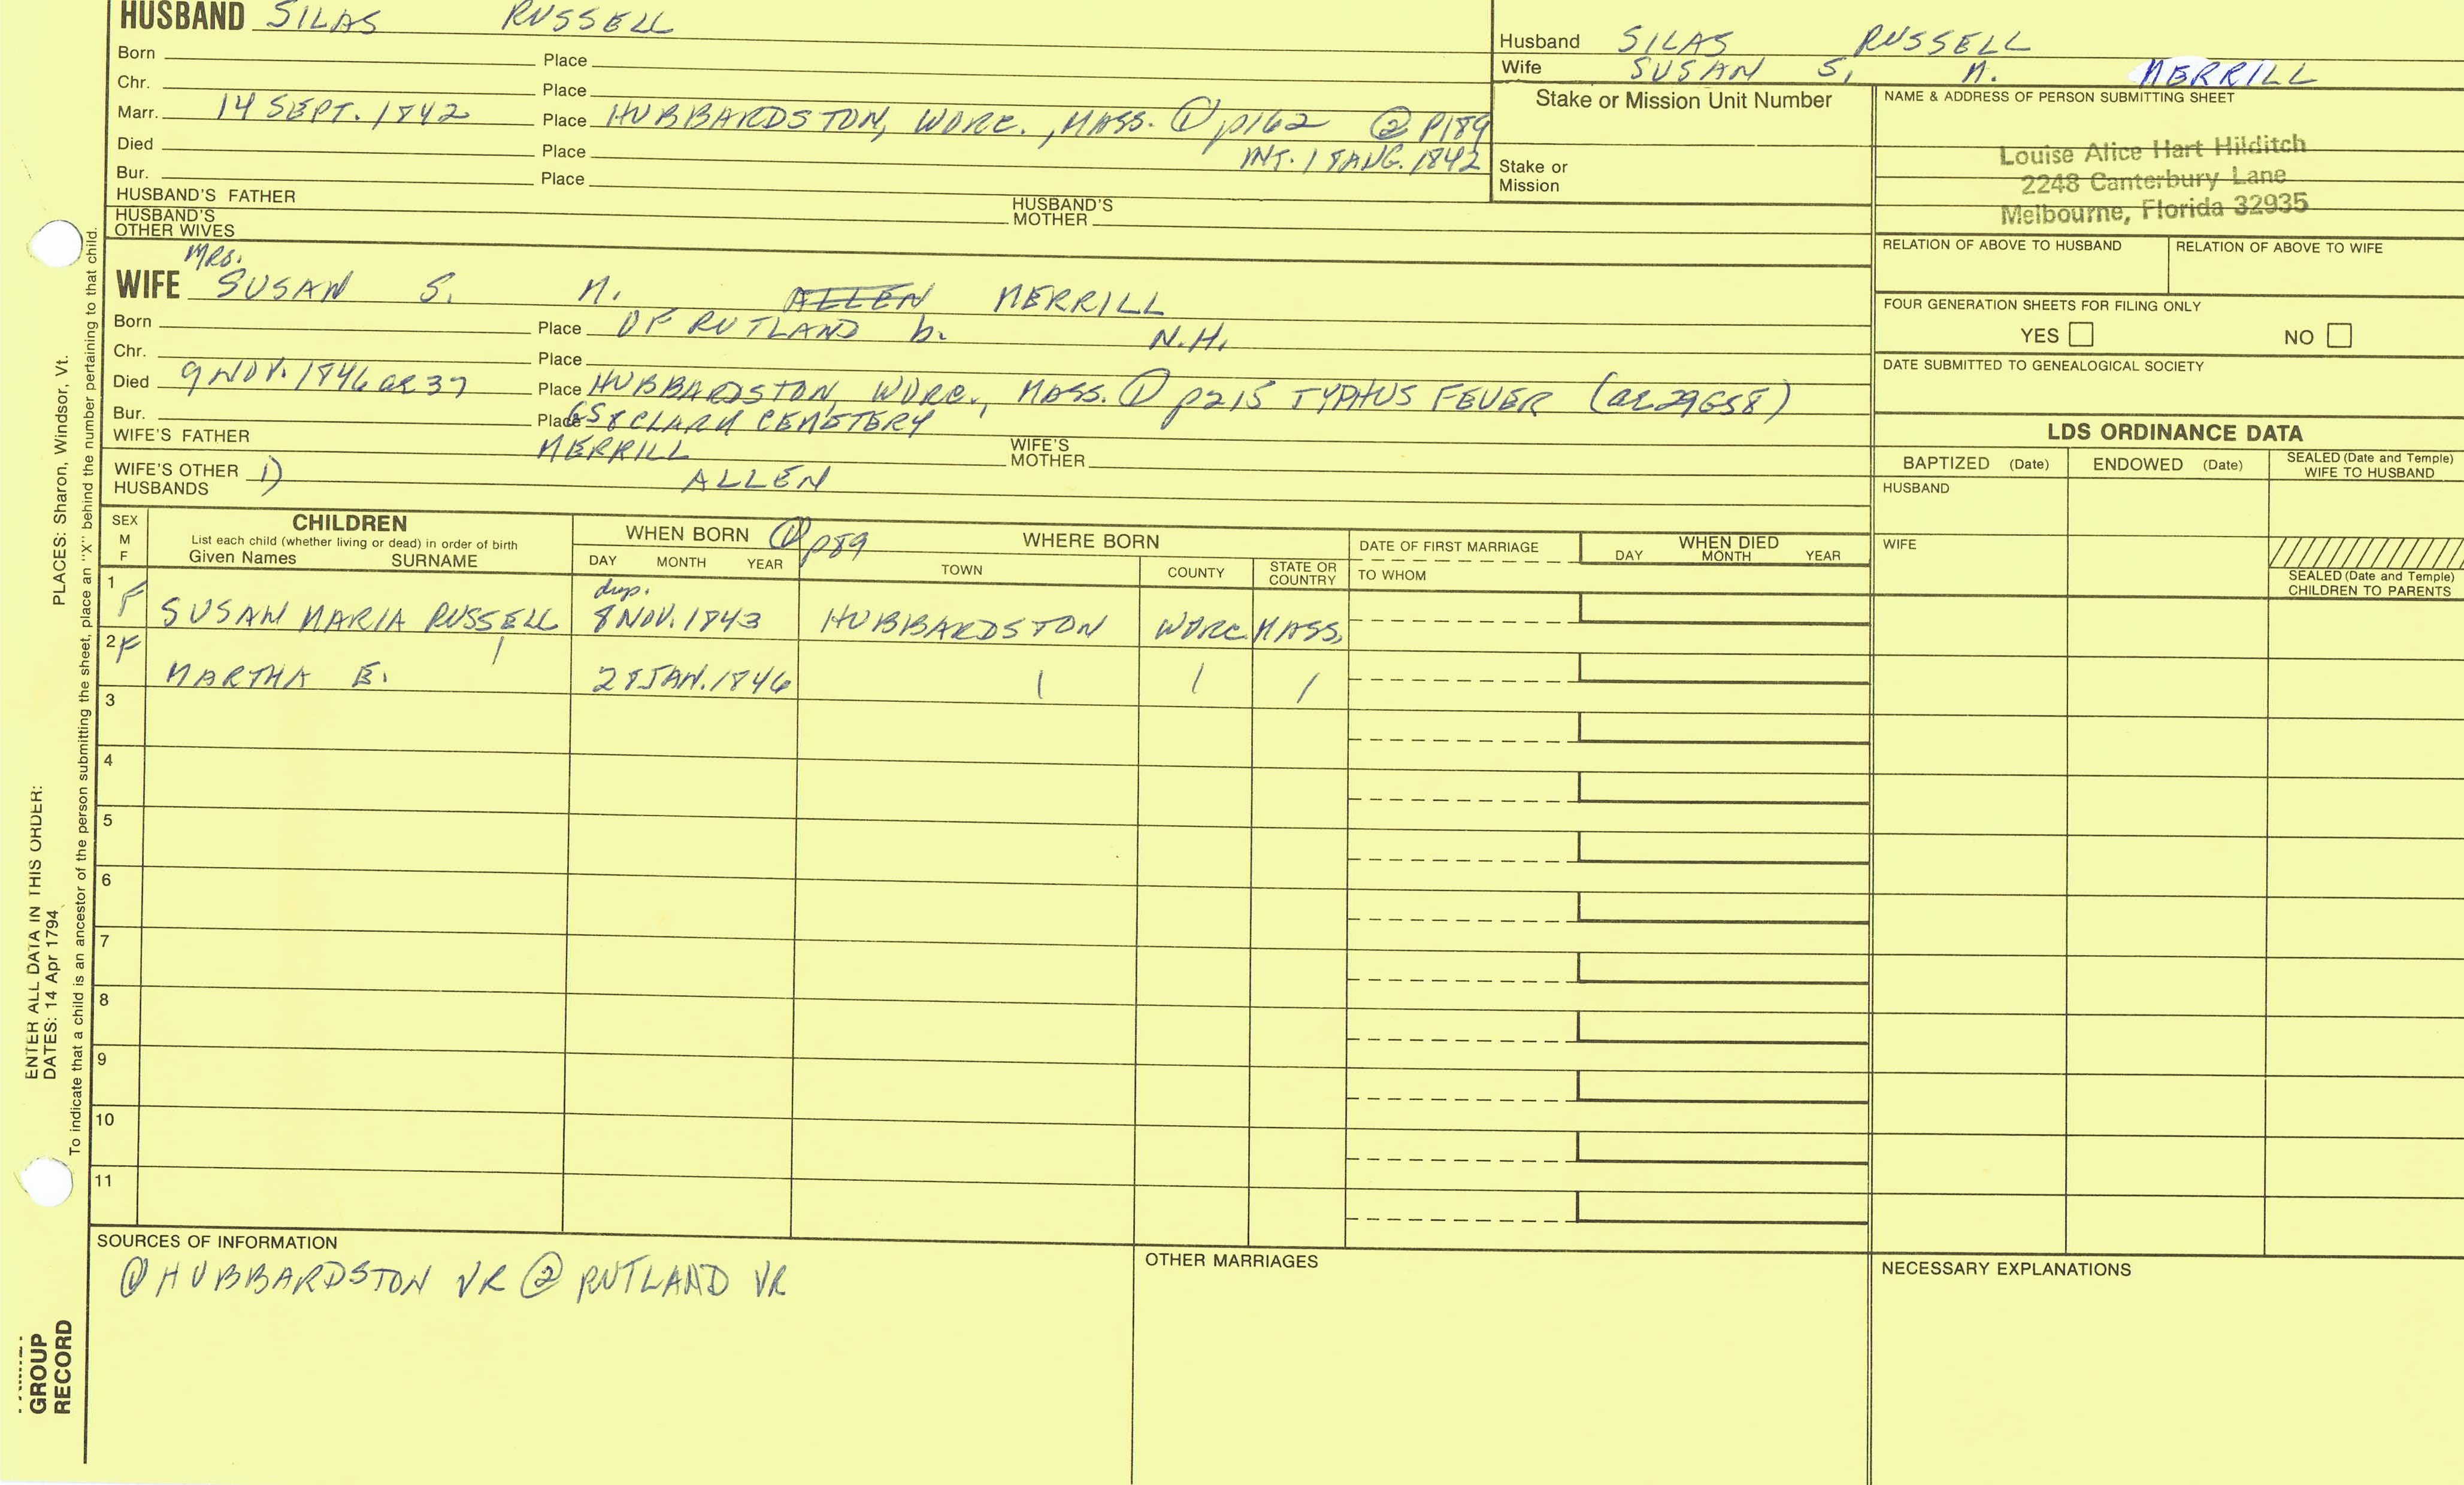 HUSBAND SILAS RUSSELL
Born Place
Chr. Place
Marr. 14 SEPT. 1842 Place HUBBARDSTON, WORC., MASS. ① p162 ② P189
Died Place INT. 18 AUG. 1842
Bur. Place
HUSBAND'S FATHER HUSBAND'S MOTHER
HUSBAND'S OTHER WIVES
MRS.
WIFE SUSAN S. M. ALLEN MERRILL
Born Place OF RUTLAND b. N.H.
Chr. Place
Died 9 NOV. 1846 ae 37 Place HUBBARDSTON, WORC., MASS. ① p215 TYPHUS FEVER (ae 29 GS8)
Bur. Place GS8 CLARK CEMETERY
WIFE'S FATHER MERRILL WIFE'S MOTHER
WIFE'S OTHER HUSBANDS 1) ALLEN
Husband SILAS RUSSELL
Wife SUSAN S. M. MERRILL
Stake or Mission Unit Number
Stake or Mission
NAME & ADDRESS OF PERSON SUBMITTING SHEET
Louise Alice Hart Hilditch
2248 Canterbury Lane
Melbourne, Florida 32935
RELATION OF ABOVE TO HUSBAND RELATION OF ABOVE TO WIFE
FOUR GENERATION SHEETS FOR FILING ONLY
YES NO
DATE SUBMITTED TO GENEALOGICAL SOCIETY
LDS ORDINANCE DATA
BAPTIZED (Date) ENDOWED (Date) SEALED (Date and Temple) WIFE TO HUSBAND
HUSBAND
WIFE
SEALED (Date and Temple) CHILDREN TO PARENTS
SEX M F
CHILDREN
List each child (whether living or dead) in order of birth
Given Names SURNAME
WHEN BORN ① p89
DAY MONTH YEAR
WHERE BORN
TOWN COUNTY STATE OR COUNTRY
DATE OF FIRST MARRIAGE
TO WHOM
WHEN DIED
DAY MONTH YEAR
dup.
1 F SUSAN MARIA RUSSELL 8 NOV. 1843 HUBBARDSTON WORC. MASS.
2 F MARTHA E. 28 JAN. 1846
3
4
5
6
7
8
9
10
11
SOURCES OF INFORMATION
① HUBBARDSTON VR ② RUTLAND VR
OTHER MARRIAGES
NECESSARY EXPLANATIONS
ENTER ALL DATA IN THIS ORDER:
DATES: 14 Apr 1794
PLACES: Sharon, Windsor, Vt.
To indicate that a child is an ancestor of the person submitting the sheet, place an "X" behind the number pertaining to that child.
GROUP
RECORD